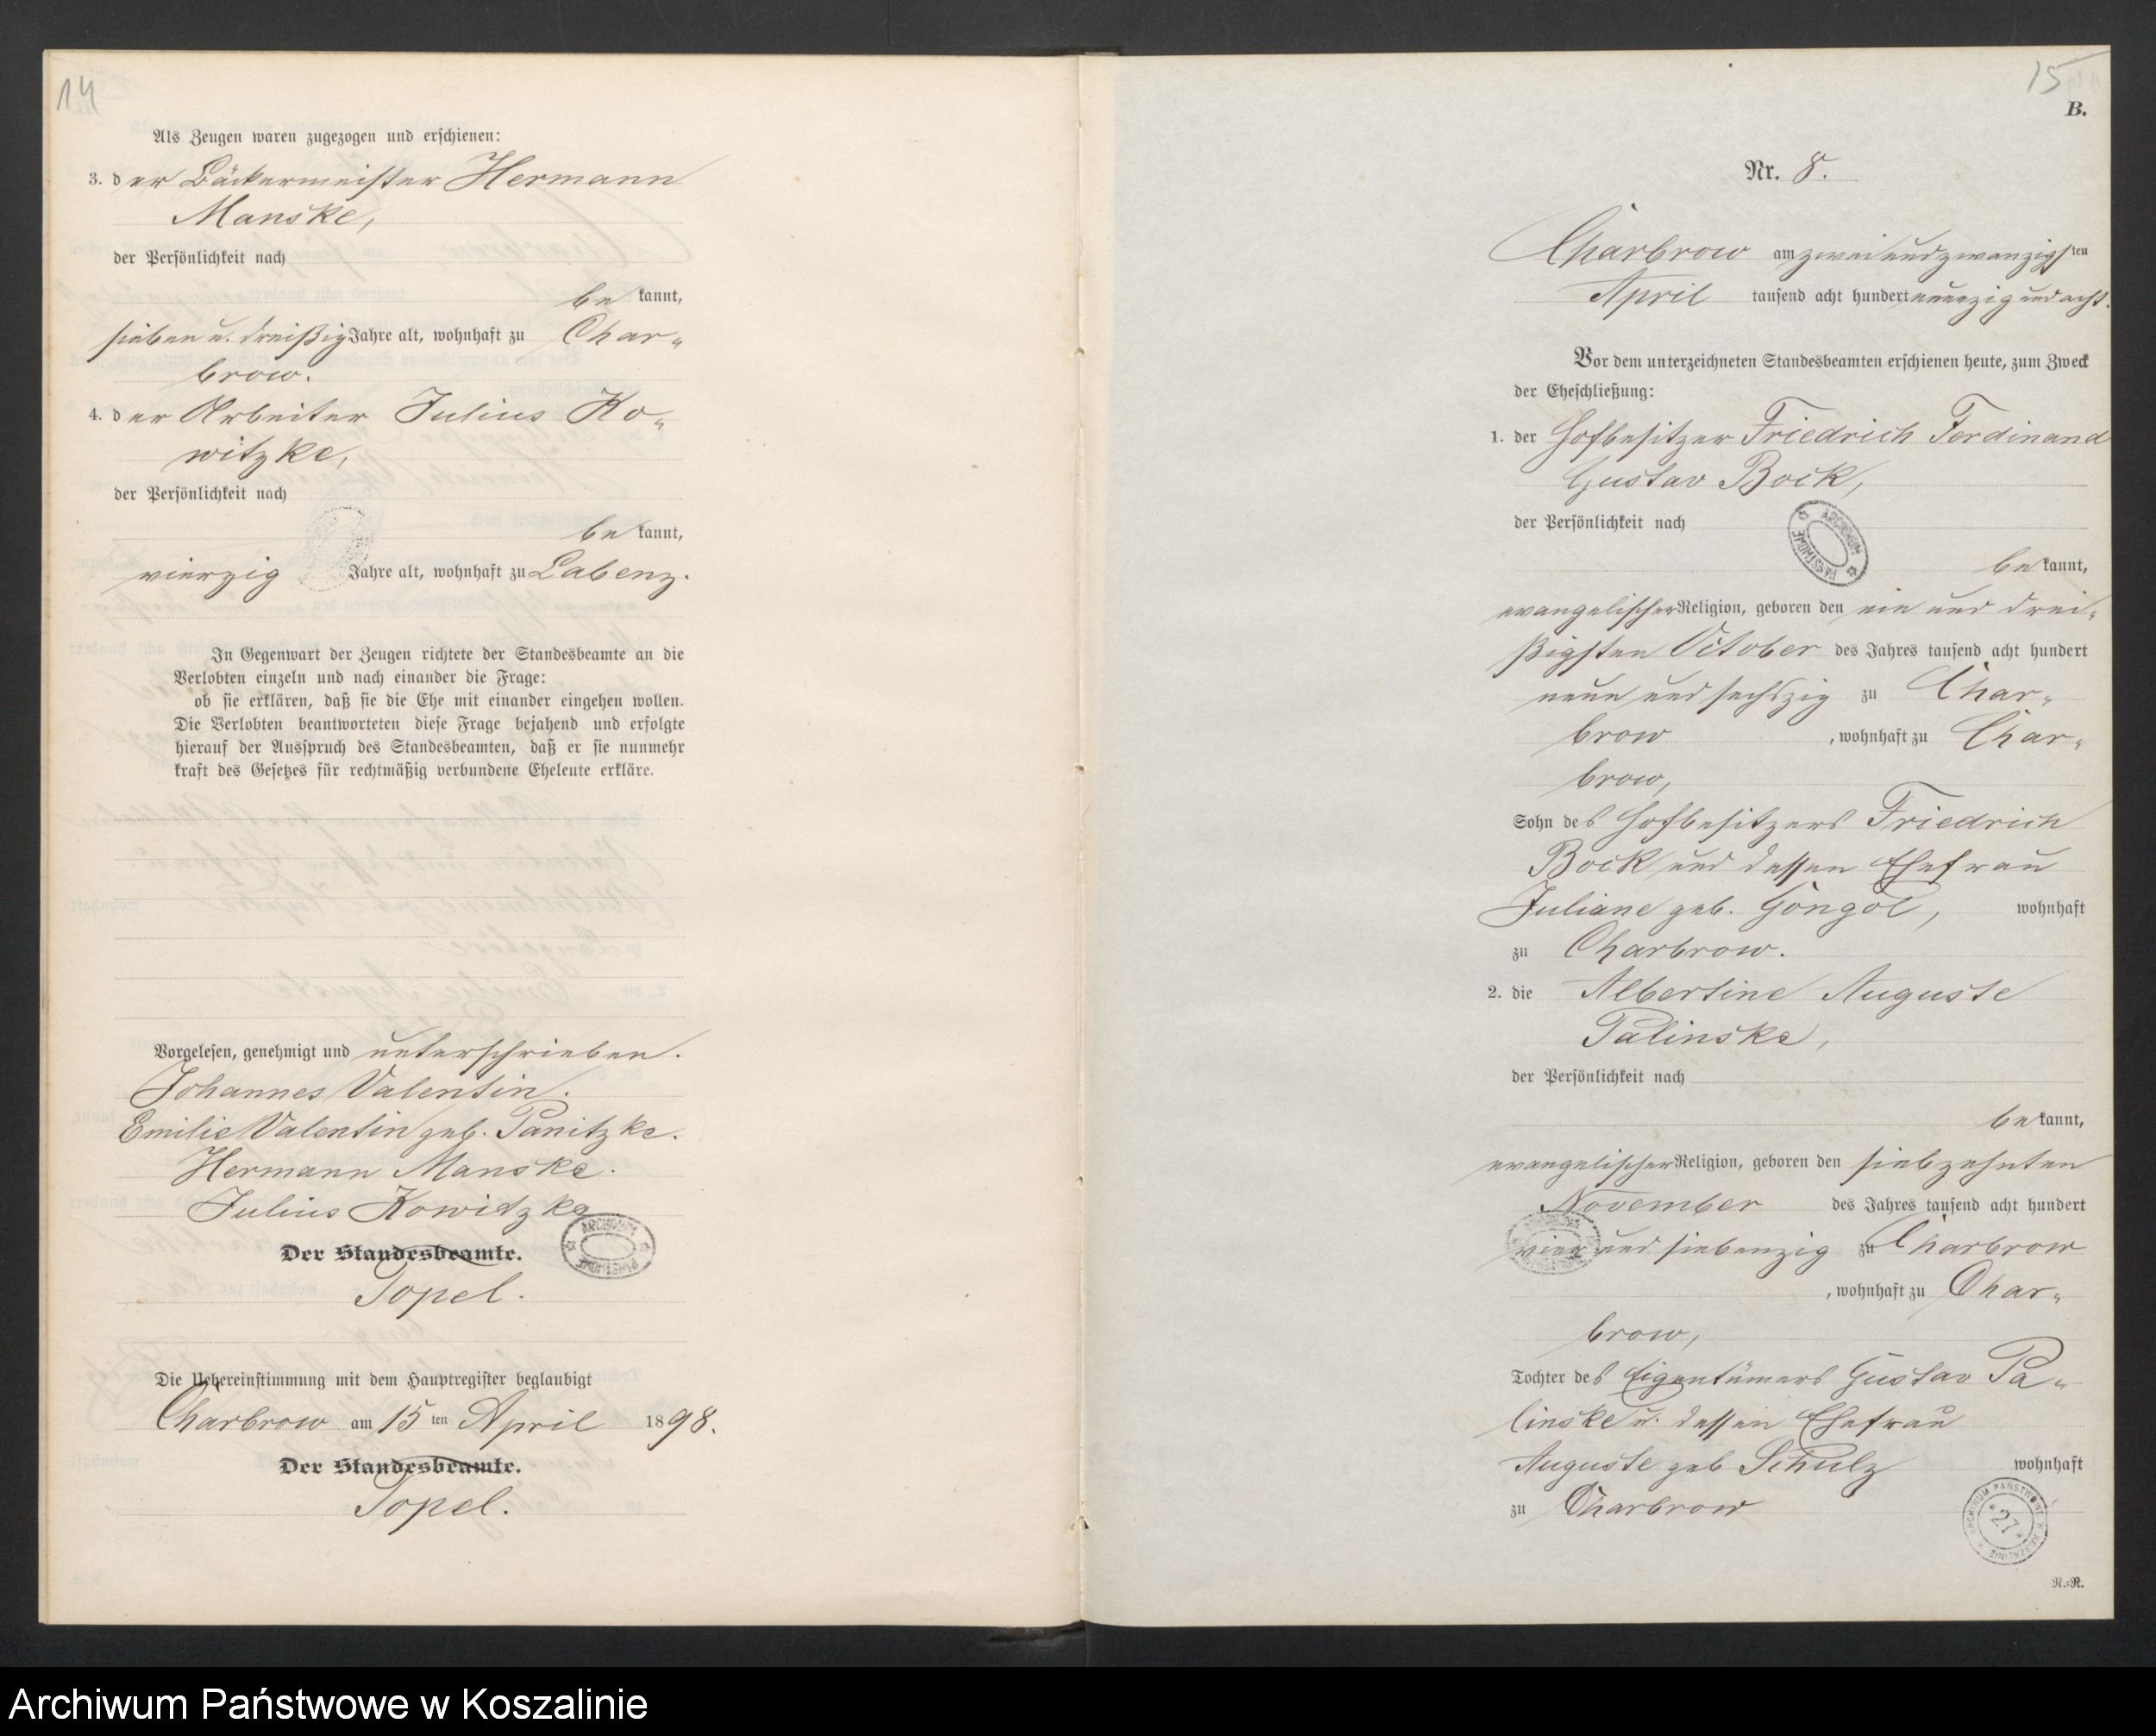 14
Als Zeugen waren zugezogen und erschienen:
3. der Bäckermeister Hermann
Manske,
der Persönlichkeit nach
be kannt,
sieben u. dreißig Jahre alt, wohnhaft zu Char-
brow.
4. der Arbeiter Julius Ko-
witzke,
der Persönlichkeit nach
be kannt,
vierzig Jahre alt, wohnhaft zu Labenz.
In Gegenwart der Zeugen richtete der Standesbeamte an die
Verlobten einzeln und nach einander die Frage:
ob sie erklären, daß sie die Ehe mit einander eingehen wollen.
Die Verlobten beantworteten diese Frage bejahend und erfolgte
hierauf der Ausspruch des Standesbeamten, daß er sie nunmehr
kraft des Gesetzes für rechtmäßig verbundene Eheleute erkläre.
Vorgelesen, genehmigt und unterschrieben.
Johannes Valentin.
Emilie Valentin geb. Panitzke.
Hermann Manske.
Julius Kowitzke
Der Standesbeamte.
Topel.
Die Uebereinstimmung mit dem Hauptregister beglaubigt
Charbrow am 15 ten April 1898.
Der Standesbeamte.
Topel.
15
B.
Nr. 8.
Charbrow am zwei und zwanzigsten
April tausend acht hundert neunzig und acht.
Vor dem unterzeichneten Standesbeamten erschienen heute, zum Zweck
der Eheschließung:
1. der Hofbesitzer Friedrich Ferdinand
Gustav Bock,
der Persönlichkeit nach
be kannt,
evangelischer Religion, geboren den ein und drei-
ßigsten October des Jahres tausend acht hundert
neun und sechszig zu Char-
brow , wohnhaft zu Char-
brow,
Sohn des Hofbesitzers Friedrich
Bock und dessen Ehefrau
Juliane geb. Göngöl, wohnhaft
zu Charbrow.
2. die Albertine Auguste
Palinske,
der Persönlichkeit nach
be kannt,
evangelischer Religion, geboren den siebzehnten
November des Jahres tausend acht hundert
vier und siebenzig zu Charbrow
, wohnhaft zu Char-
brow,
Tochter des Eigentümers Gustav Pa-
linske u. dessen Ehefrau
Auguste geb Schulz wohnhaft
zu Charbrow
ARCHIWUM PAŃSTWOWE
27
N.=R.
Archiwum Państwowe w Koszalinie